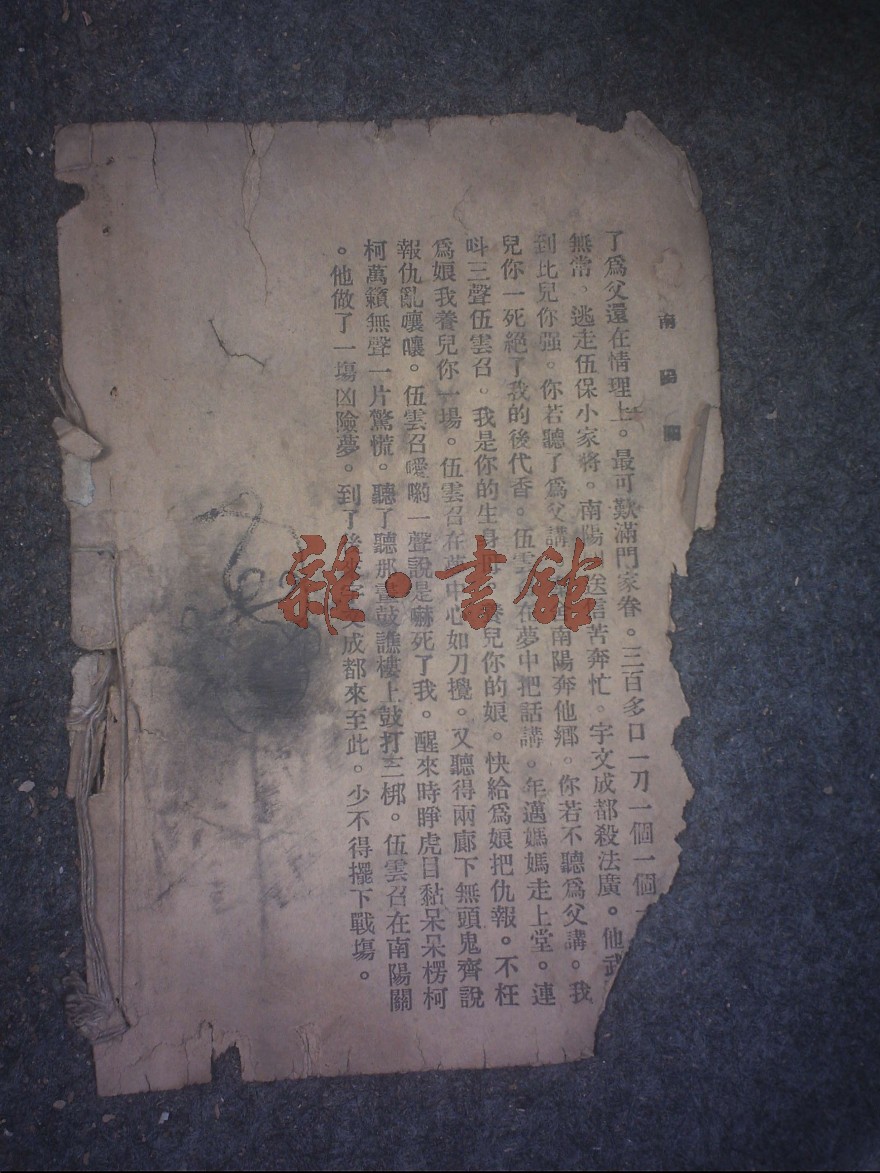 南陽關
了爲父還在情理上。最可歎滿門家眷。三百多口一刀一個一個
無常。逃走伍保小家將。南陽送信苦奔忙。宇文成都殺法廣。他武
到比兒你强。你若聽了爲父講。南陽奔他鄉。你若不聽爲父講。我
兒你一死絕了我的後代香。伍雲在夢中把話講。年邁媽媽走上堂。連
呌三聲伍雲召。我是你的生身養兒你的娘。快給爲娘把仇報。不枉
爲娘我養兒你一場。伍雲召在夢中心如刀攪。又聽得兩廊下無頭鬼齊說
報仇亂嚷嚷。伍雲召噯喲一聲說是嚇死了我。醒來時睜虎目黏呆呆楞柯
柯萬籟無聲一片驚慌。聽了聽那畫鼓譙樓上鼓打三梆。伍雲召在南陽關
。他做了一塲凶險夢。到了後成都來至此。少不得擺下戰塲。
雜·書館